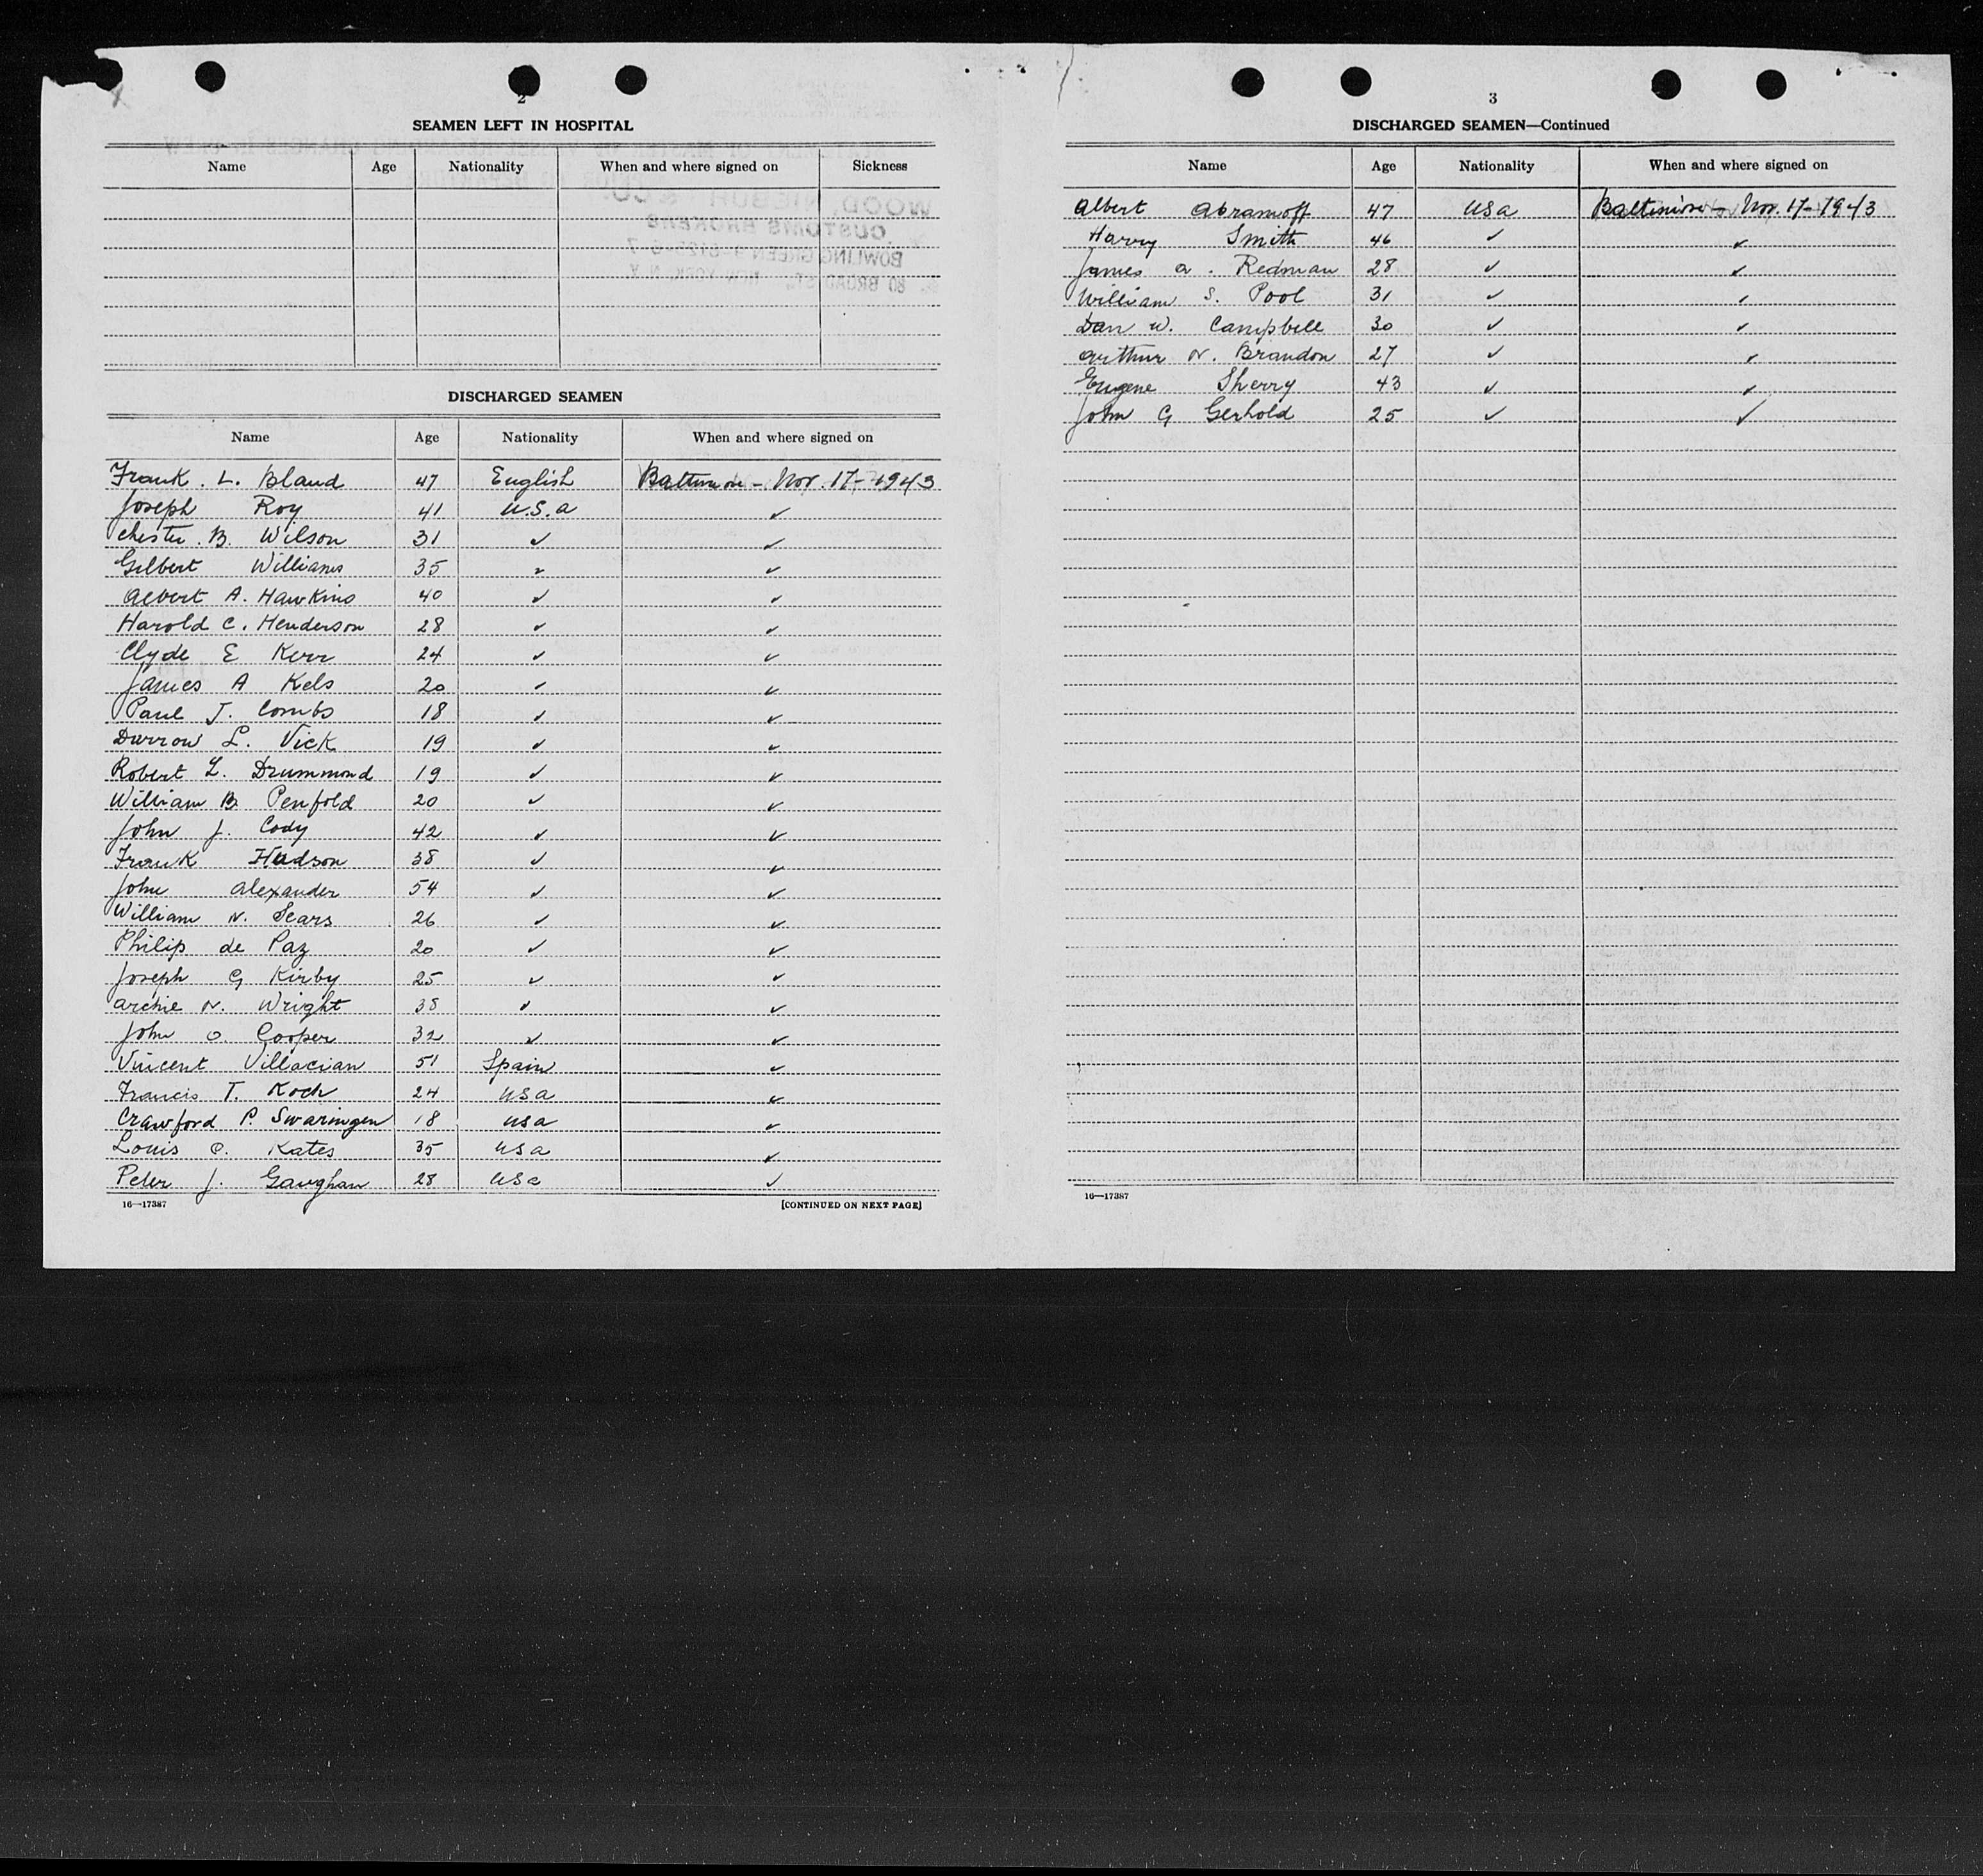 2
SEAMEN LEFT IN HOSPITAL
Name Age Nationality When and where signed on Sickness
DISCHARGED SEAMEN
Name Age Nationality When and where signed on
Frank. L. Bland 47 English Baltimore - Nov. 17 - 1943
Joseph Roy 41 U.S.a ✓
Chester. B. Wilson 31 ✓ ✓
Gilbert Williams 35 ✓ ✓
Albert A. Hawkins 40 ✓ ✓
Harold C. Henderson 28 ✓ ✓
Clyde E Kerr 24 ✓ ✓
James A Kels 20 ✓ ✓
Paul J. Combs 18 ✓ ✓
Durrow L. Vick 19 ✓ ✓
Robert L. Drummond 19 ✓ ✓
William B. Penfold 20 ✓ ✓
John J. Cody 42 ✓ ✓
Frank Hudson 38 ✓ ✓
John Alexander 54 ✓ ✓
William N. Sears 26 ✓ ✓
Philip de Paz 20 ✓ ✓
Joseph G Kirby 25 ✓ ✓
Archie N. Wright 38 ✓ ✓
John O. Cooper 32 ✓ ✓
Vincent Villacian 51 Spain ✓
Francis T. Koch 24 USA ✓
Crawford P. Swaringen 18 USA ✓
Louis C. Kates 35 USA ✓
Peter J. Gaughan 28 USA ✓
16—17387 [CONTINUED ON NEXT PAGE]
3
DISCHARGED SEAMEN—Continued
Name Age Nationality When and where signed on
Albert Abramoff 47 USA Baltimore - Nov. 17 - 1943
Harry Smith 46 ✓ ✓
James A. Redman 28 ✓ ✓
William S. Pool 31 ✓ ✓
Dan W. Campbell 30 ✓ ✓
Arthur N. Brandon 27 ✓ ✓
Eugene Sherry 43 ✓ ✓
John G Gerhold 25 ✓ ✓
16—17387